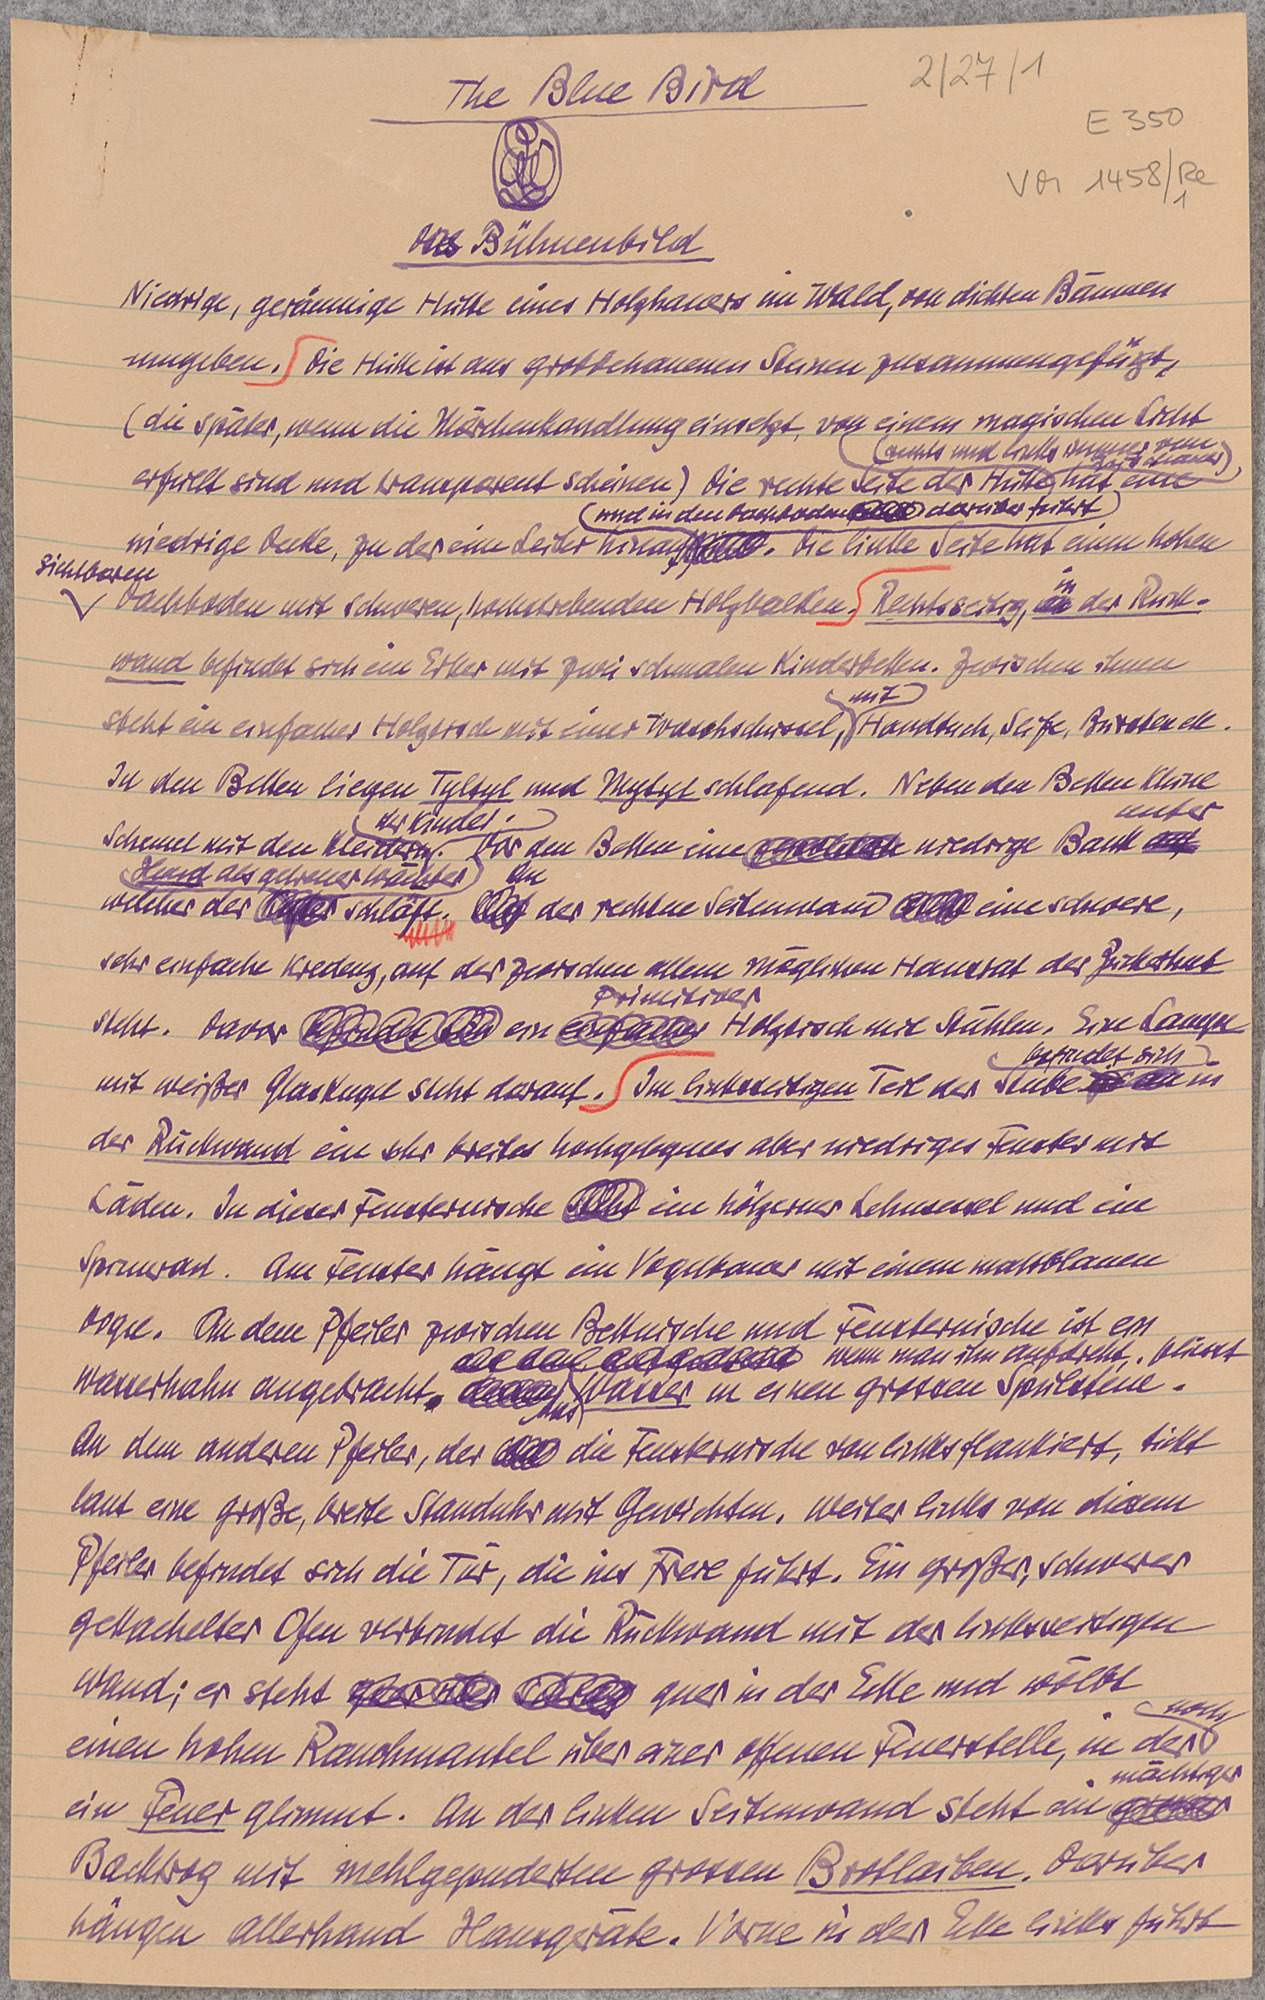 The Blue Bird
2/27/1
E 350
Vor 1458/Re
1
Das Bühnenbild
Niedrige, geräumige Hütte eines Holzhauers im Wald, von dichten Bäumen
umgeben. Die Hütte ist aus grobbehauenen Steinen zusammengefügt,
(die später, wenn die Märchenhandlung einsetzt, von einem magischen Licht
(rechts und links immer vom Zuschauer)
erfüllt sind und transparent scheinen) Die rechte Seite der Hütte hat eine
(und in den Dachboden darüber führt)
niedrige Decke, zu der eine Leiter hinauf. Die linke Seite hat einen hohen
sichtbaren
Dachboden mit schweren, hochstrebenden Holzbalken. Rechtsseitig, in der Rück-
wand befindet sich ein Erker mit zwei schmalen Kinderbetten. Zwischen ihnen
mit
steht ein einfacher Holztisch mit einer Waschschüssel, Handtuch, Seife, Bürsten etc.
In den Betten liegen Tyltyl und Mytyl schlafend. Neben den Betten kleine
der Kinder. unter
Schemel mit den Kleidern. Vor den Betten eine niedrige Bank auf
Hund als getreuer Wächter An
welcher der schläft. der rechten Seitenwand eine schwere,
sehr einfache Kredenz, auf der zwischen allem möglichen Hausrat der Zuckerhut
primitiver
steht. Davor befindet sich ein einfacher Holztisch mit Stühlen. Eine Lampe
befindet sich
mit weißer Glaskugel steht darauf. Im linksseitigen Teil der Stube in
der Rückwand ein sehr breites hochgelegenes aber niedriges Fenster mit
Läden. In dieser Fensternische steht ein hölzerner Lehnsessel und ein
Spinnrad. Am Fenster hängt ein Vogelbauer mit einem mattblauen
Vogel. An dem Pfeiler zwischen Bettnische und Fensternische ist ein
wenn man ihn aufdreht, fliesst
Wasserhahn angebracht. Wasser in einen grossen Spülstein.
An dem anderen Pfeiler, der die Fensternische von links flankiert, tickt
laut eine große, breite Standuhr mit Gewichten. Weiter links von diesem
Pfeiler befindet sich die Tür, die ins Freie führt. Ein großer, schwerer
gekachelter Ofen verbindet die Rückwand mit der linksseitigen
Wand; er steht quer in der Ecke und wölbt
noch
einen hohen Rauchmantel über einer offenen Feuerstelle, in der
mächtiger
ein Feuer glimmt. An der linken Seitenwand steht ein grosser
Backtrog mit mehlgepuderten grossen Brotlaiben. Darüber
hängen allerhand Hausgeräte. Vorne in der Ecke links führt